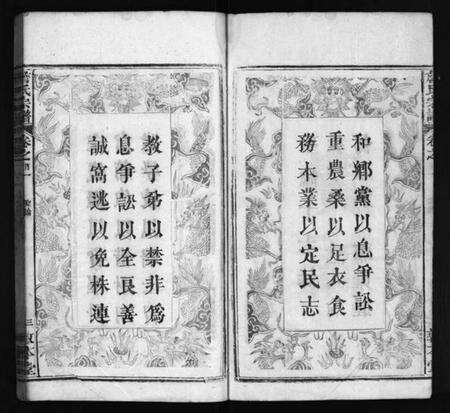 和鄉黨以息爭訟
重農桑以足衣食
務本業以定民志
教子弟以禁非為
息爭訟以全良善
誡窩逃以免株連
氏宗譜
卷之
三